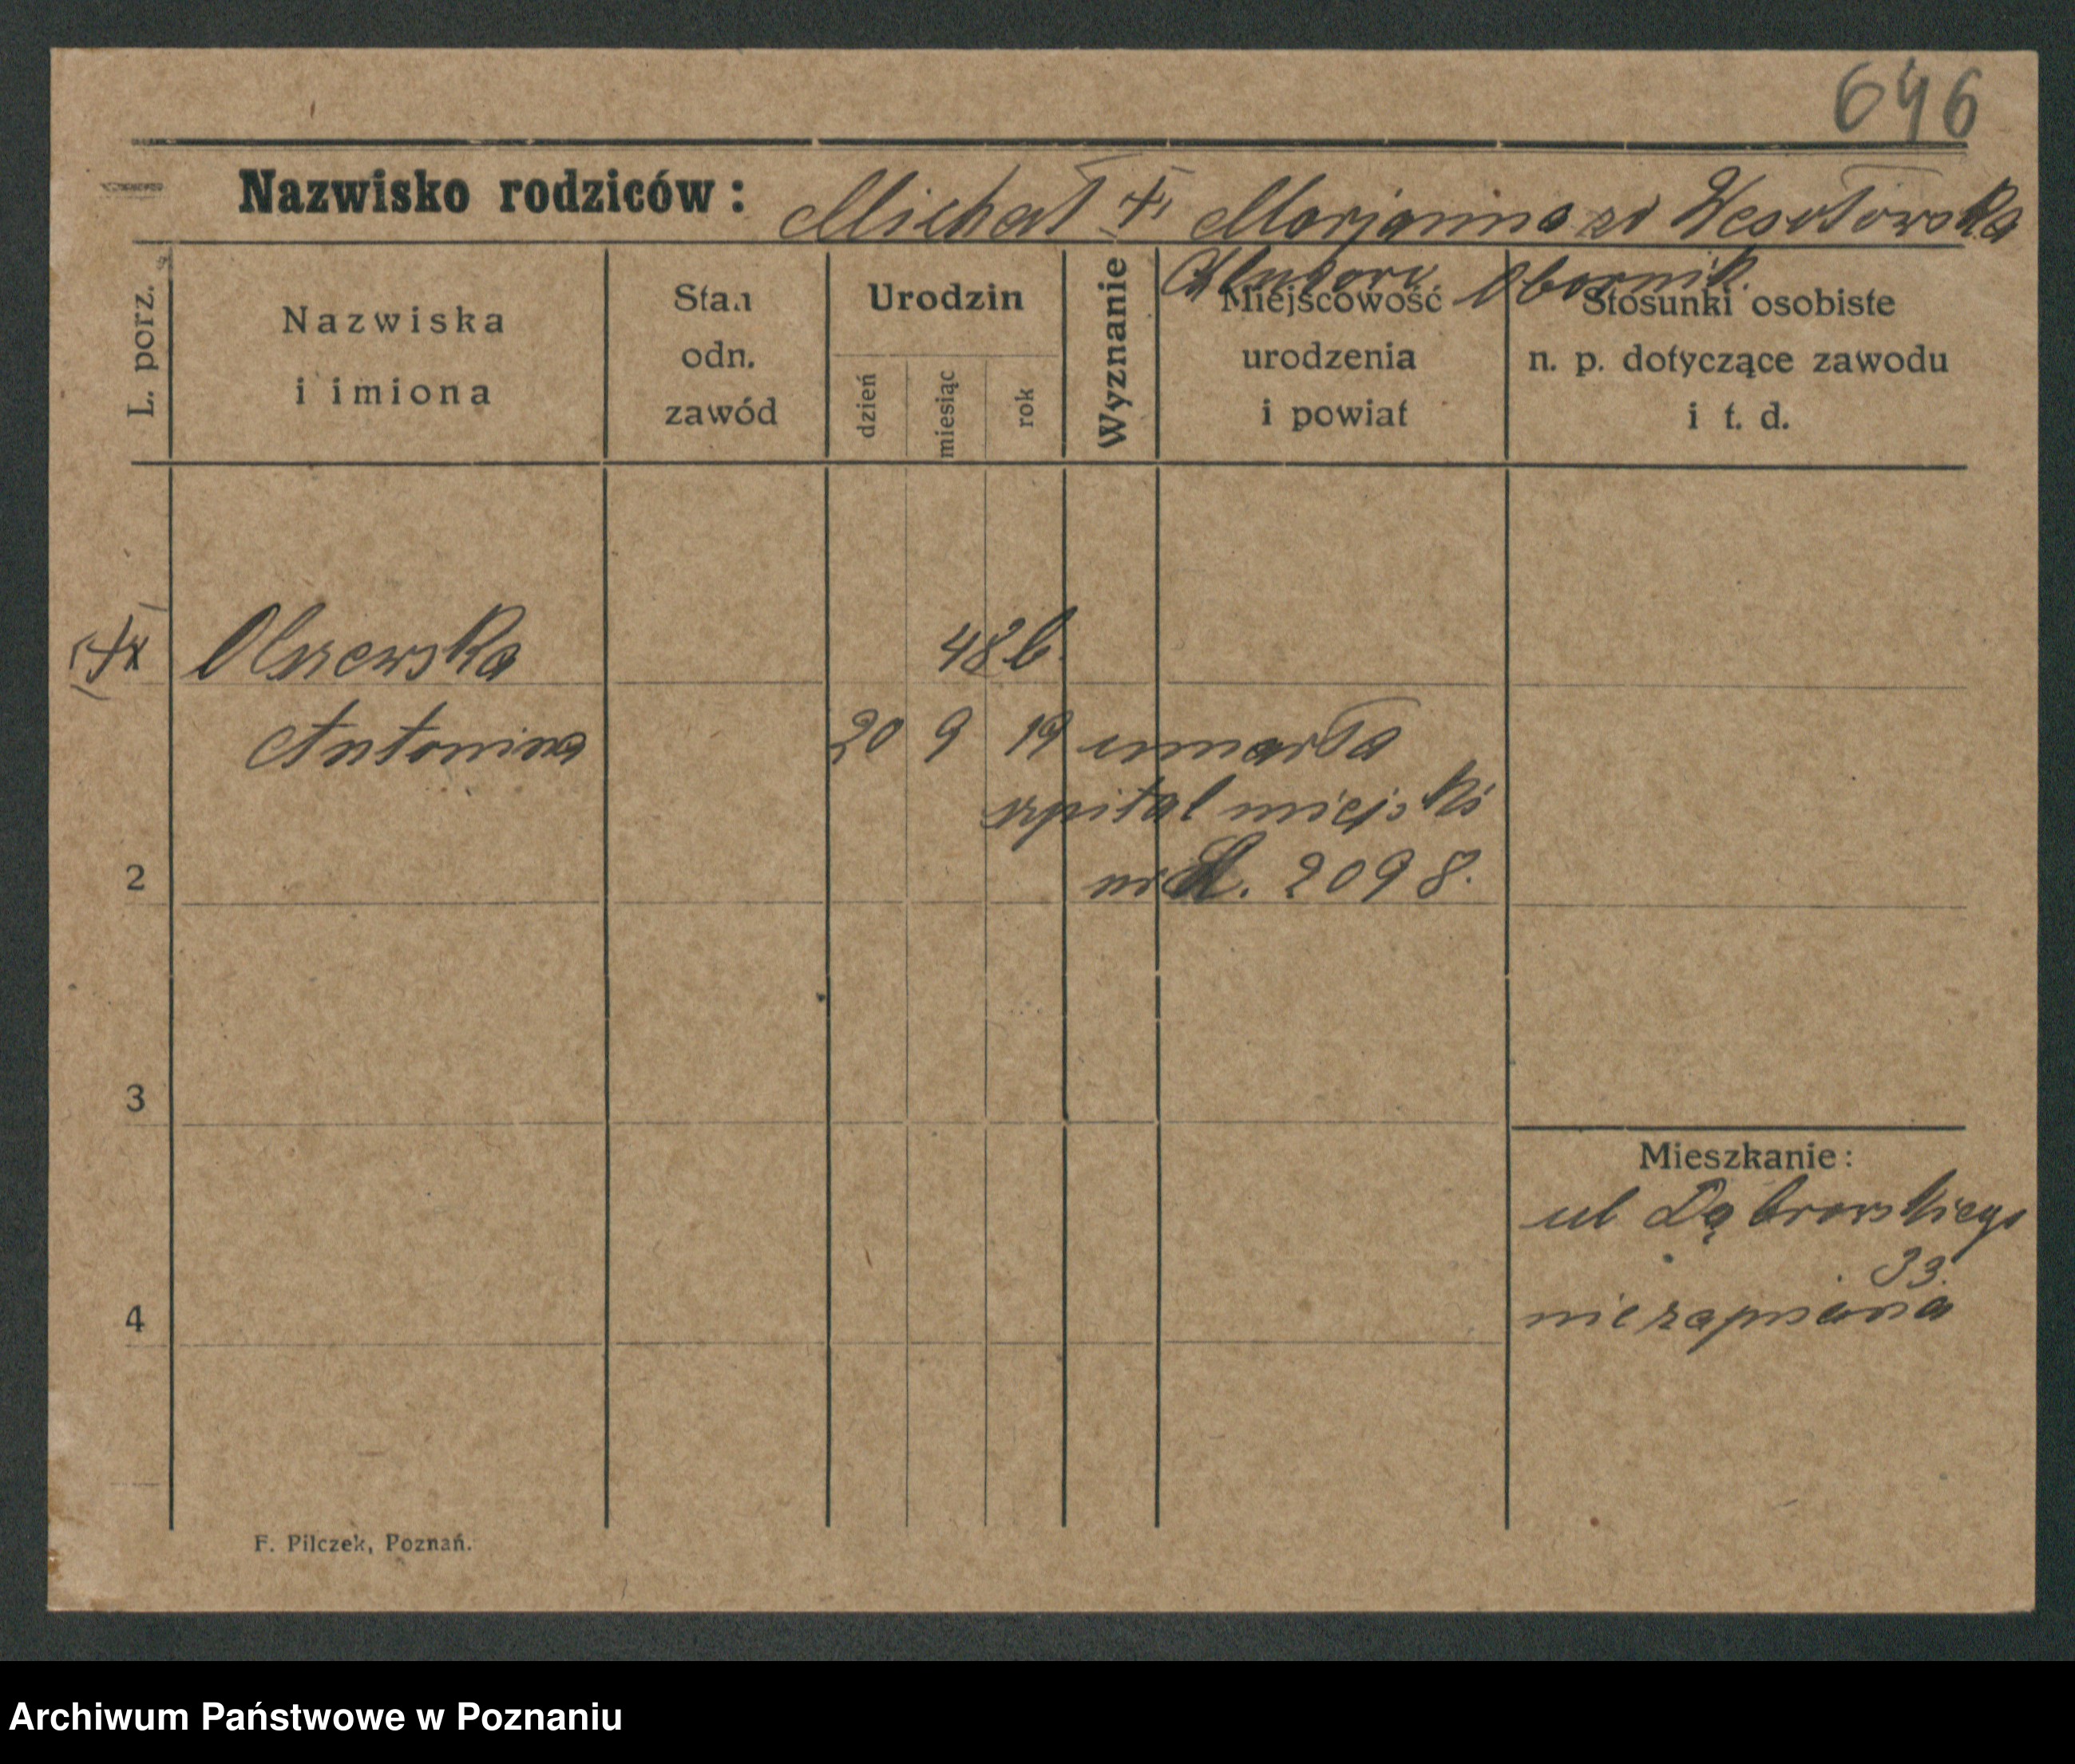 646
Nazwisko rodziców: Michał † Marjanna zd Wesołowska
Obornik.
L. porz.
Nazwiska
i imiona
Stan
odn.
zawód
Urodzin
dzień
miesiąc
rok
Wyznanie
Miejscowość
urodzenia
i powiat
Stosunki osobiste
n. p. dotyczące zawodu
i t. d.
Olszewska 48 l.
Antonina 20 9 19 umarła
szpital miejski
2 nr 2098.
3
Mieszkanie:
ul Dąbrowskiego
33.
4 niezapisana
F. Pilczek, Poznań.
Archiwum Państwowe w Poznaniu